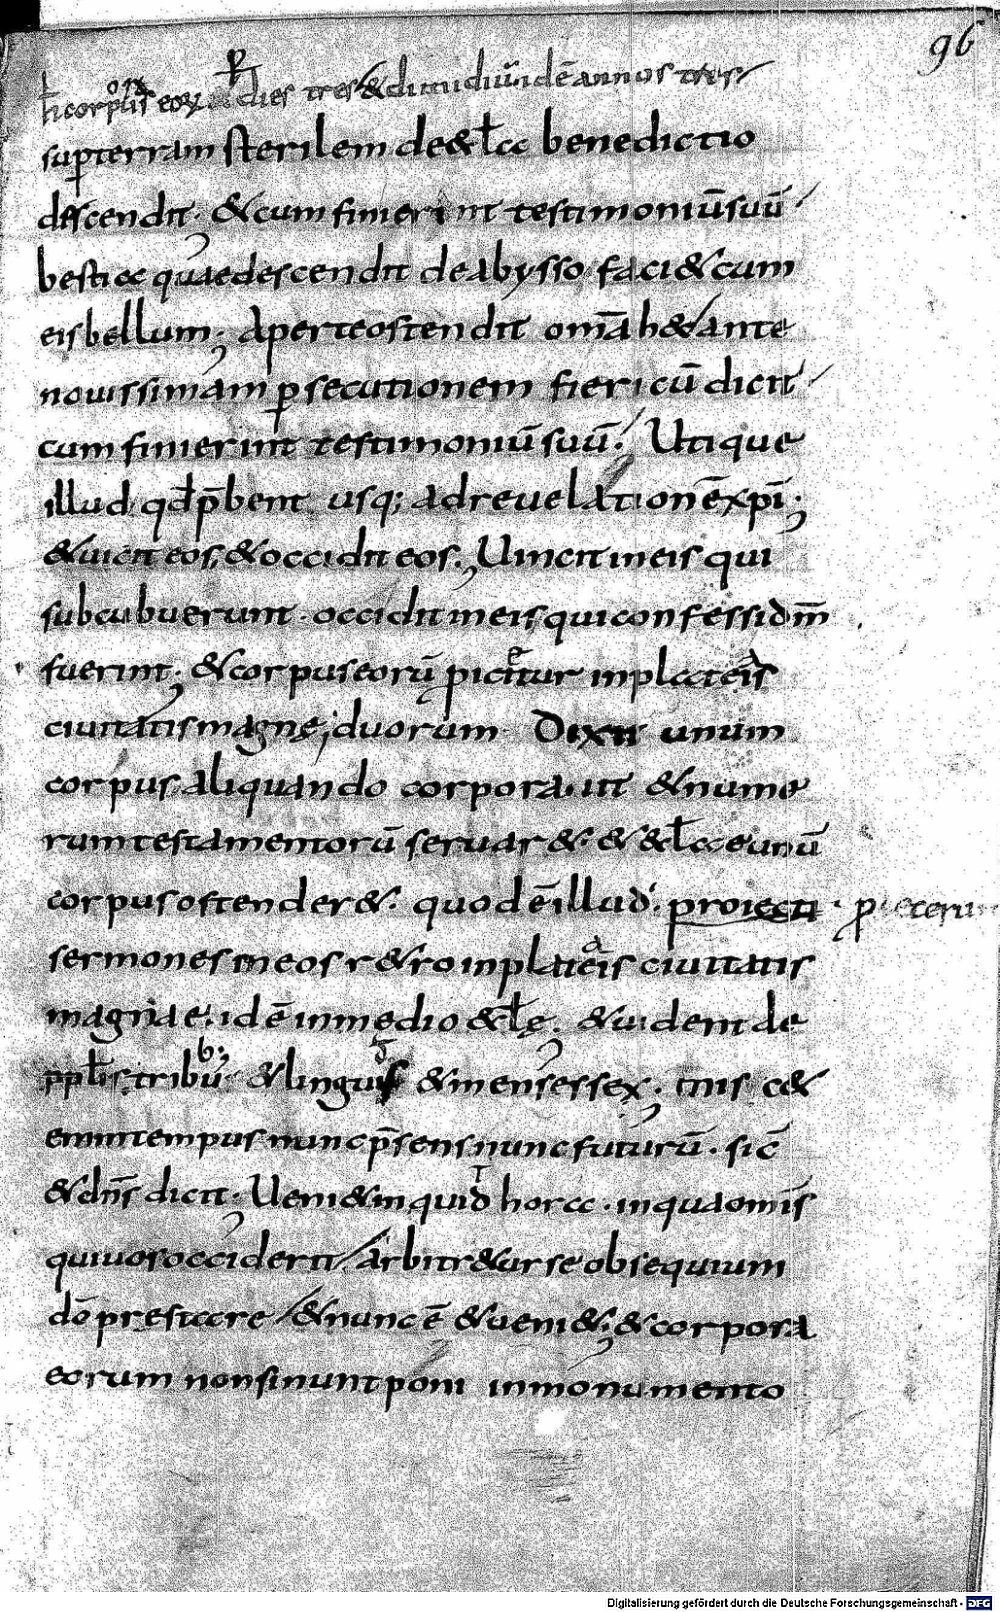 96
h corpus eoꝝ dies tres & dimidiũ idẽ annos tres
suꝑ terram sterilem de &ł cc benedictio
descendit · & cum finierint testimoniũ suũ
bestiae quae descendit de abysso faci& cum
eis bellum; Aperte ostendit om̅a h& ante
nouissimam ꝑsecutionem fieri cũ dicit
cum finierint testimoniũ suũ; Utique
illud qd̄ p̄bent usq; ad reuelationẽ xp̄i;
& uicit eos, & occidit eos; Uincit in eis qui
subcubuerunt · occidit in eis qui confessi dm̅
fuerint; & corpus eorũ picitur in plateis
ciuitatis magnę; duorum Dixit unum
corpus aliquando corpora · ut & nume
rum testamentorũ seruar& · & &łcce unũ
corpus ostender& · quod ẽ illud · proiecti · proiecerunt
sermones meos r&ro in plateis ciuitatis
magnae · id ẽ in medio &łę; & uident de
pplis tribuͫ b; & linguis & menses sex; tris c&
enim tempus nunc p̄sens nunc futurũ · sic̄
& dn̅s dicit; Ueni& inquid hora · in qua om̅is
qui uos occiderit / arbitr&ur se obsequium
dō pręstare / & nunc ẽ & ueni&; & corpora
eorum non sinunt poni in monumento
Digitalisierung gefördert durch die Deutsche Forschungsgemeinschaft - DFG